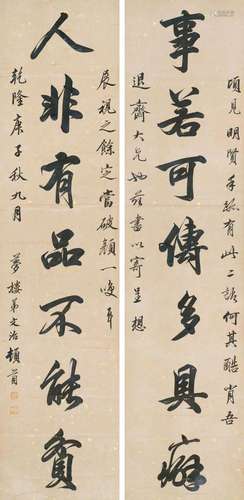 頃見明賢手跡有此二語何其酷肖吾
事若可傳多具癖
退齋大兄也茲書以寄呈想
展視之餘定當破顏一噱耳
人非有品不能貧
乾隆庚子秋九月 夢樓弟文治頓首